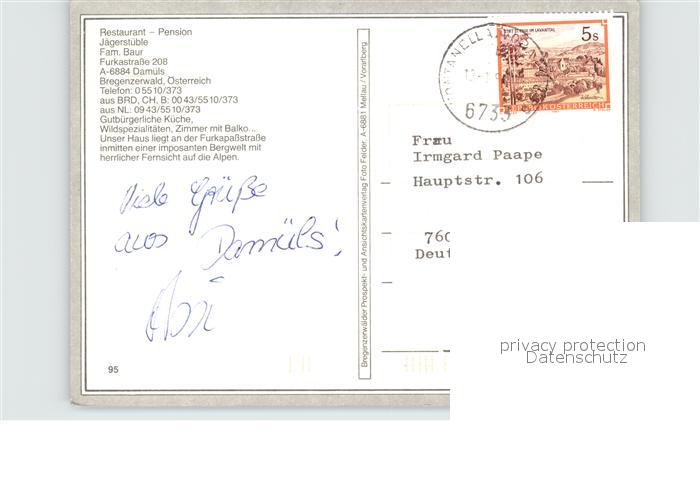 Restaurant – Pension
Jägerstüble
Fam. Baur
Furkastraße 208
A-6884 Damüls
Bregenzerwald, Österreich
Telefon: 0 55 10/373
aus BRD, CH, B: 00 43/55 10/373
aus NL: 09 43/55 10/373
Gutbürgerliche Küche,
Wildspezialitäten, Zimmer mit Balko...
Unser Haus liegt an der Furkapaßstraße
inmitten einer imposanten Bergwelt mit
herrlicher Fernsicht auf die Alpen.
Viele Grüße
aus Damüls!
95
Bregenzerwälder Prospekt- und Ansichtskartenverlag Foto Felder, A-6881 Mellau / Vorarlberg
6733
5s
Frau
Irmgard Paape
Hauptstr. 106
760
Deut
privacy protection
Datenschutz